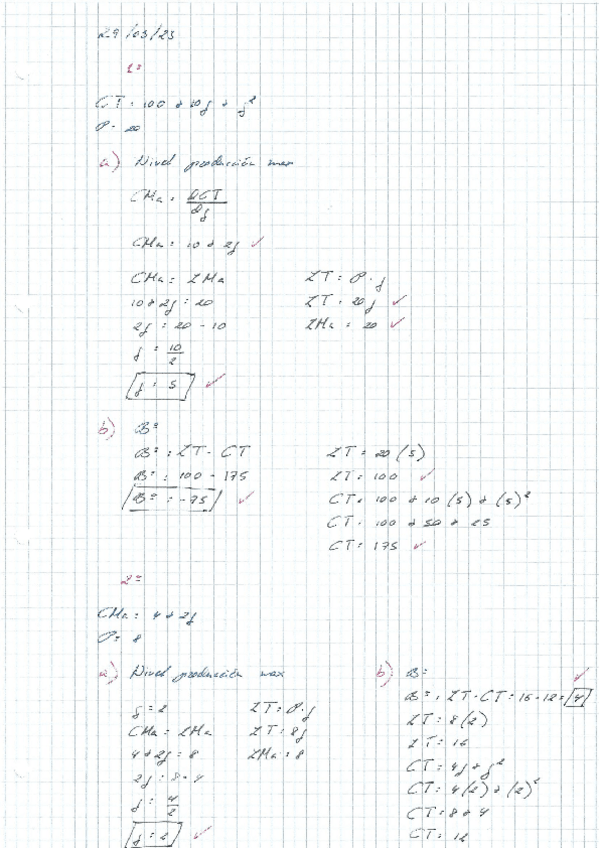 29/03/23
1º
CT = 100 + 10q + q²
P = 20
a) Nivel producción max
CMa = ΔCT / Δq
CMa = 10 + 2q ✓
CMa = IMa
10 + 2q = 20
2q = 20 - 10
q = 10/2
q = 5 ✓
IT = P · q
IT = 20q ✓
IMa = 20 ✓
b) Bº
Bº = IT - CT
Bº = 100 - 175
Bº = -75 ✓
IT = 20 (5)
IT = 100 ✓
CT = 100 + 10 (5) + (5)²
CT = 100 + 50 + 25
CT = 175 ✓
2º
CMa = 4 + 2q
P = 8
a) Nivel producción max
q = 2
CMa = IMa
4 + 2q = 8
2q = 8 - 4
q = 4/2
q = 2 ✓
IT = P · q
IT = 8q
IMa = 8
b) Bº ✓
Bº = IT - CT = 16 - 12 = 4
IT = 8 (2)
IT = 16
CT = 4q + q²
CT = 4 (2) + (2)²
CT = 8 + 4
CT = 12